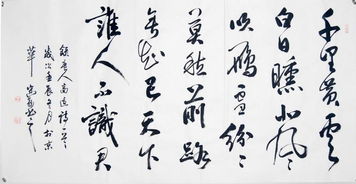 千里黄雲
白日曛北風
吹雁雪紛々
莫愁前路
無知己天下
誰人不識君
錄唐人高適詩一首
歲次壬辰年月於京
華